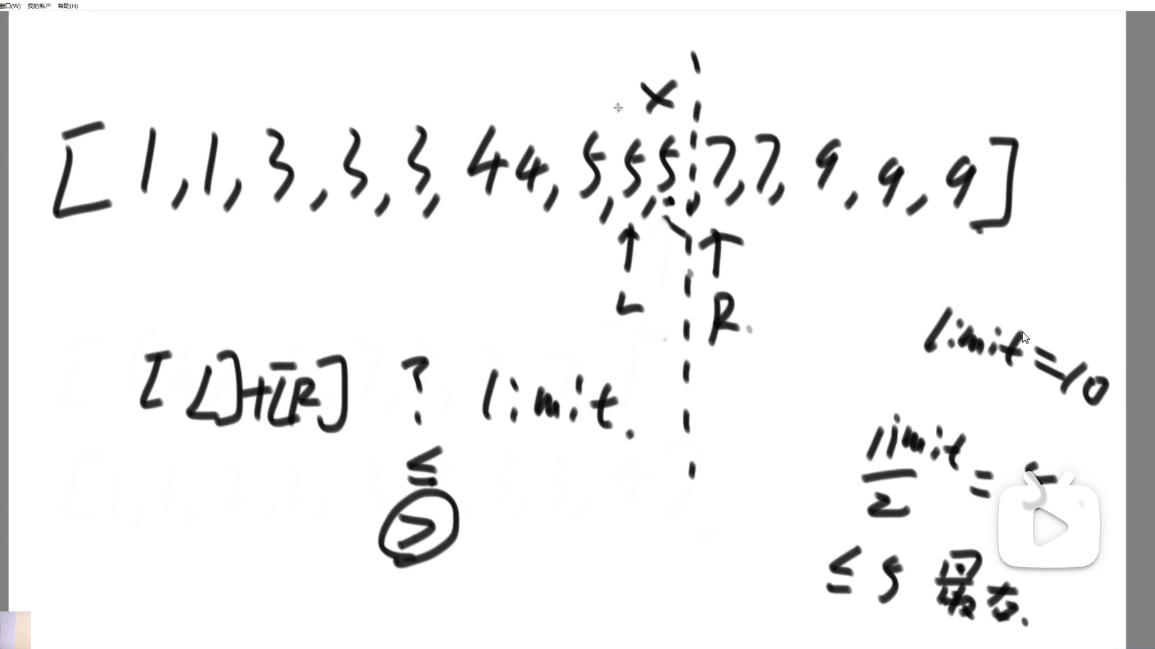 窗口(W) 我的帐户 帮助(H)
X
[1,1,3,3,3,44,5,5,5,7,7,9,9,9]
L R.
limit=10
[L]+[R] ? limit.
≤
>
limit
2 =
≤ 5 最右.